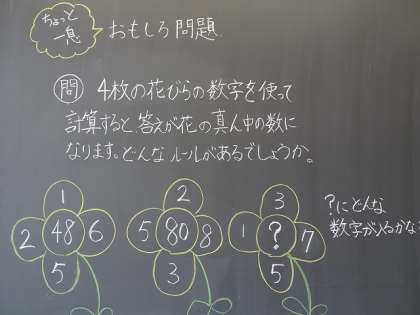 ちょっと
一息
おもしろ問題
問 4枚の花びらの数字を使って
計算すると、答えが花の真ん中の数に
なります。どんなルールがあるでしょうか。
1
2 48 6
5
2
5 80 8
3
3
1 ? 7
5
?にどんな
数字が入るかな